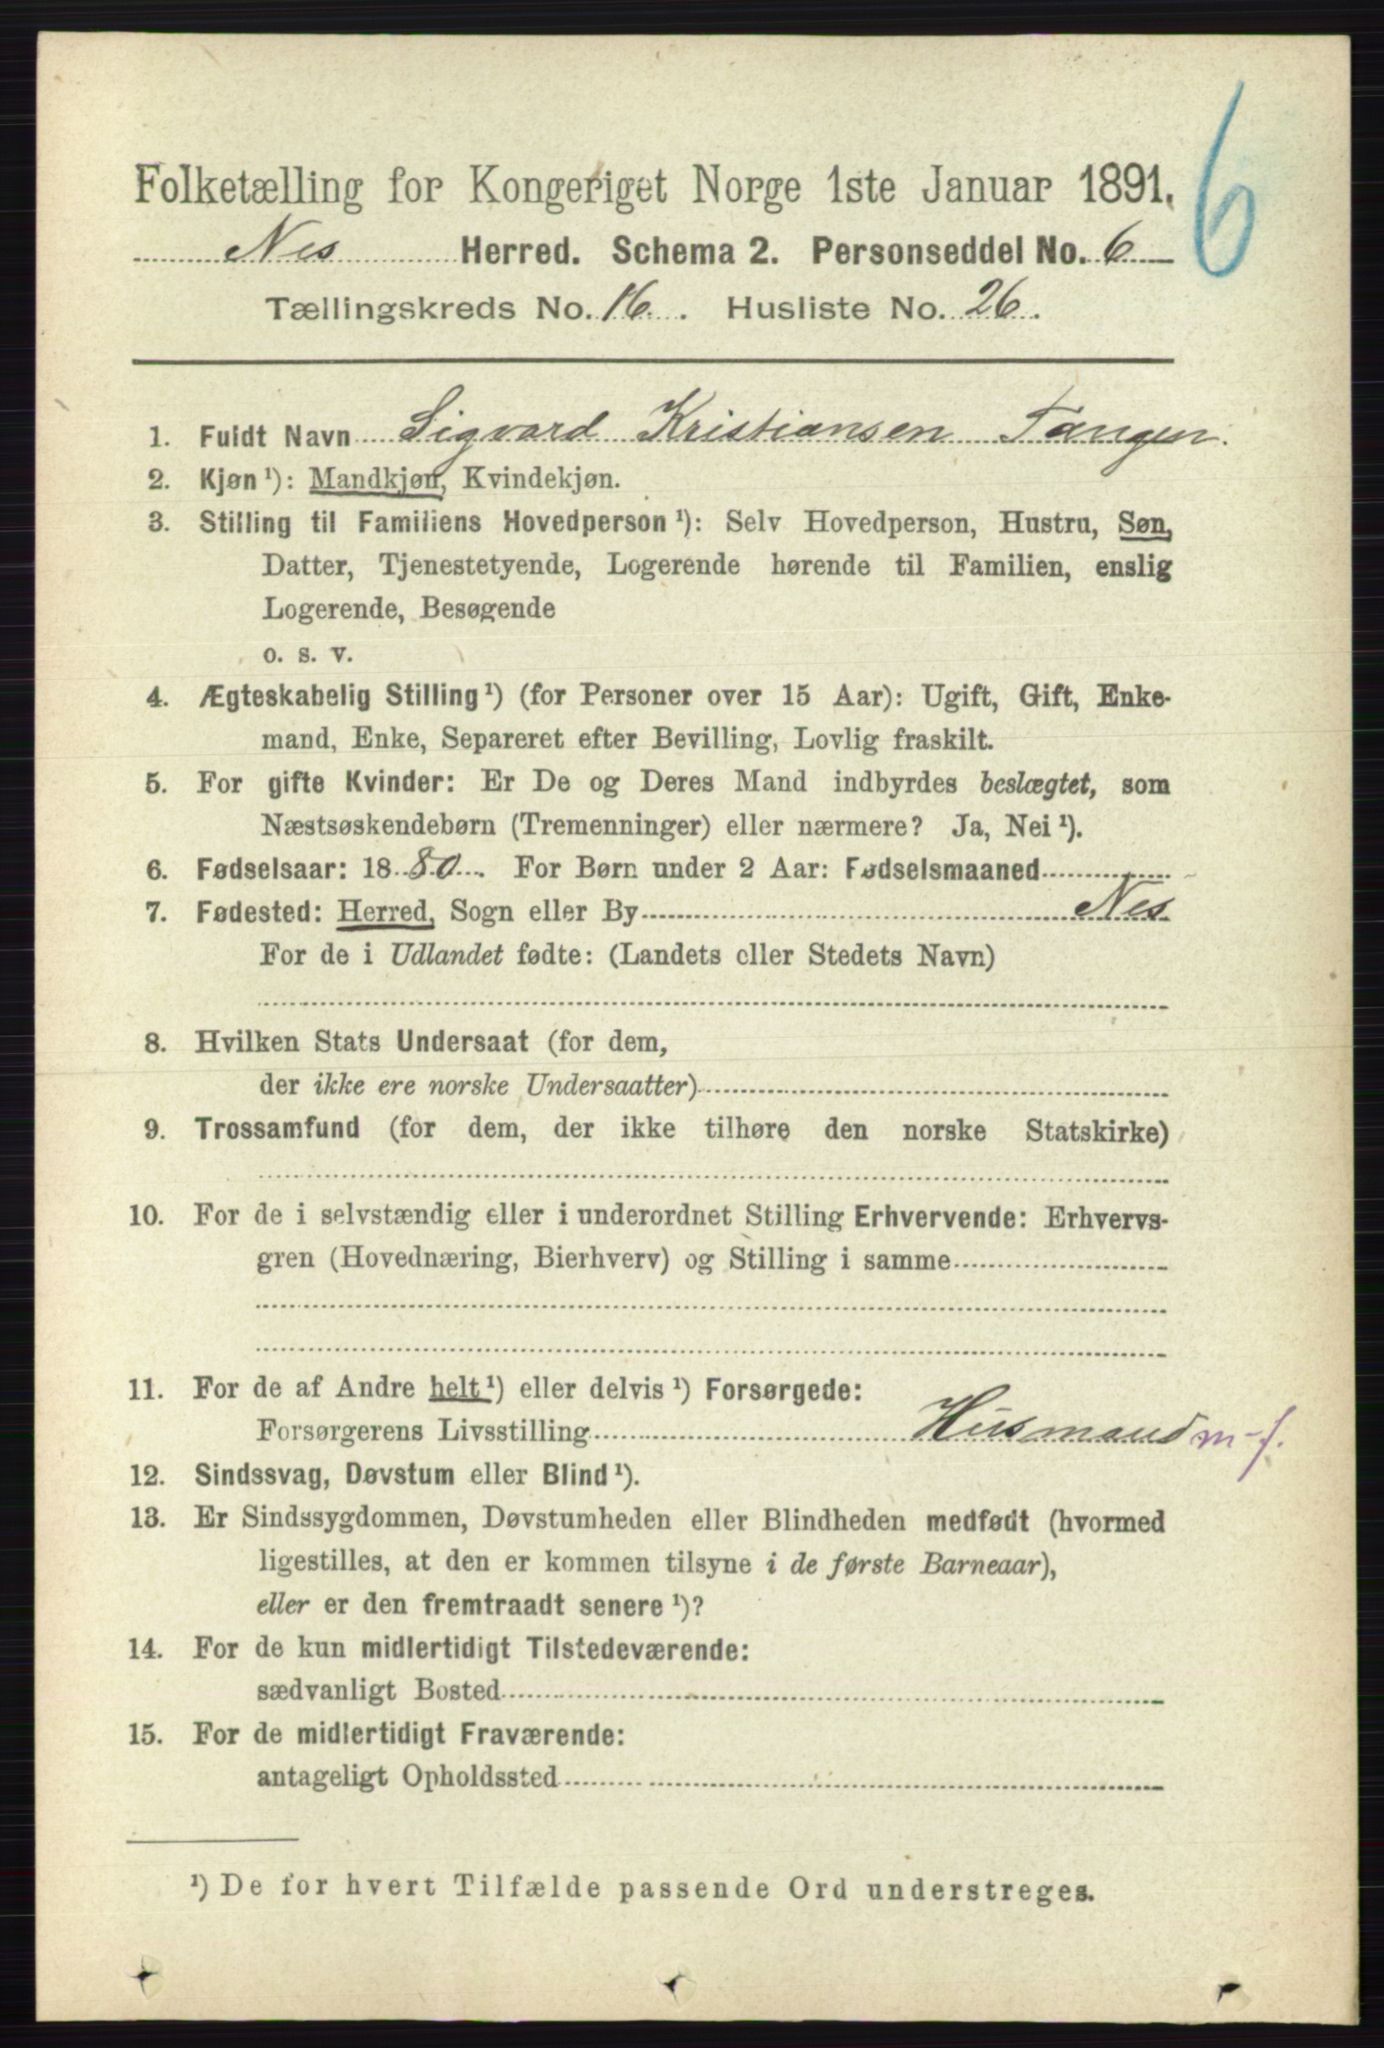 6
Folketælling for Kongeriget Norge 1ste Januar 1891.
Nes Herred. Schema 2. Personseddel No. 6
Tællingskreds No. 16. Husliste No. 26.
1. Fuldt Navn Sigvard Kristiansen Tangen.
2. Kjøn ¹): Mandkjøn, Kvindekjøn.
3. Stilling til Familiens Hovedperson ¹): Selv Hovedperson, Hustru, Søn,
Datter, Tjenestetyende, Logerende hørende til Familien, enslig
Logerende, Besøgende
o. s. v.
4. Ægteskabelig Stilling ¹) (for Personer over 15 Aar): Ugift, Gift, Enke-
mand, Enke, Separeret efter Bevilling, Lovlig fraskilt.
5. For gifte Kvinder: Er De og Deres Mand indbyrdes beslægtet, som
Næstsøskendebørn (Tremenninger) eller nærmere? Ja, Nei ¹).
6. Fødselsaar: 1880. For Børn under 2 Aar: Fødselsmaaned
7. Fødested: Herred, Sogn eller By Nes
For de i Udlandet fødte: (Landets eller Stedets Navn)
8. Hvilken Stats Undersaat (for dem,
der ikke ere norske Undersaatter)
9. Trossamfund (for dem, der ikke tilhøre den norske Statskirke)
10. For de i selvstændig eller i underordnet Stilling Erhvervende: Erhvervs-
gren (Hovednæring, Bierhverv) og Stilling i samme
11. For de af Andre helt ¹) eller delvis ¹) Forsørgede:
Forsørgerens Livsstilling Husmand m-j.
12. Sindssvag, Døvstum eller Blind ¹).
13. Er Sindssygdommen, Døvstumheden eller Blindheden medfødt (hvormed
ligestilles, at den er kommen tilsyne i de første Barneaar),
eller er den fremtraadt senere ¹)?
14. For de kun midlertidigt Tilstedeværende:
sædvanligt Bosted
15. For de midlertidigt Fraværende:
antageligt Opholdssted
¹) De for hvert Tilfælde passende Ord understreges.